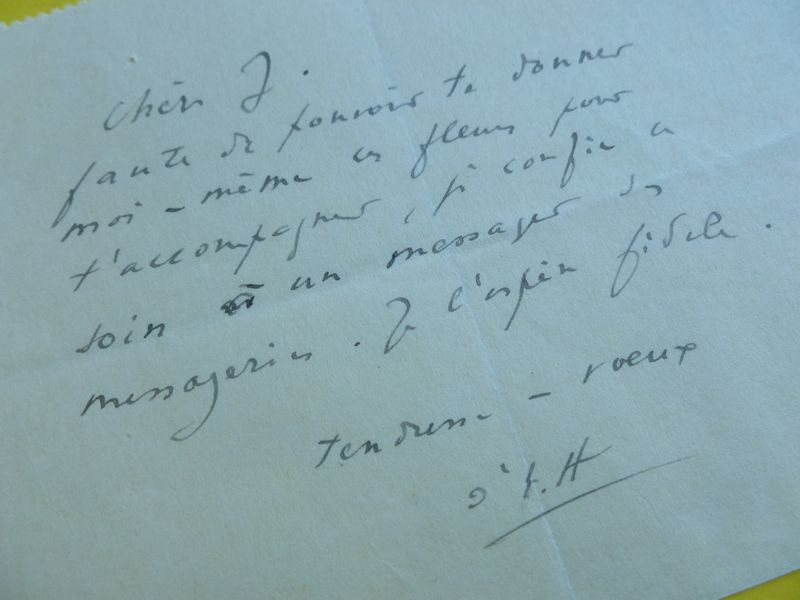 Chère J.
faute de pouvoir te donner
moi-même ces fleurs pour
t'accompagner, je confie ce
soin à un messager des
messageries. Je l'espère fidèle.
tendresse - voeux
d'E.H